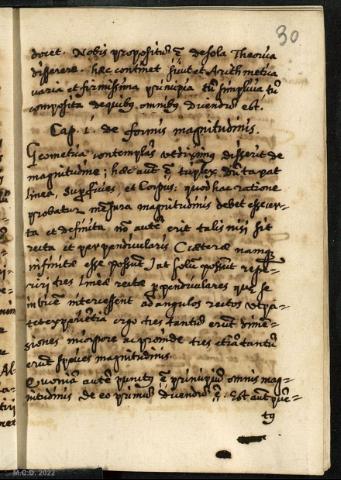 30
docet. Nobis propositũ ẽ de sola Theoria
disserere. hæc continet sicut et Arithmetica
varia et firmissima principia tũ simplicia tũ
composita de quibus omnibus dicendũ est.
Cap. 1. de formis magnitudinis.
Geometria contemplās disserit de
magnitudine; hæc autẽ ẽ triplex
linea, superficies et Corpus; quod hac ratione
probatur mensura magnitudinis debet esse cer-
ta et definita, nõ autẽ erit talis nisi sit
recta et perpendicularis Cæteræ namq
infinitæ esse possunt, at solũ possunt repe-
riri tres lineæ rectæ perpendiculares quæ se
invicem intersecent ad angulos rectos
ergo tres tantũ erunt dimẽ-
siones mensuræ ac proinde tres etiã tantũ
erunt species magnitudinis.
Quoniã autẽ punctũ ẽ principiũ omnis mag-
nitudinis de eo primũ dicendũ ẽ. Est autẽ pũc-
tũ
M.C.D. 2022